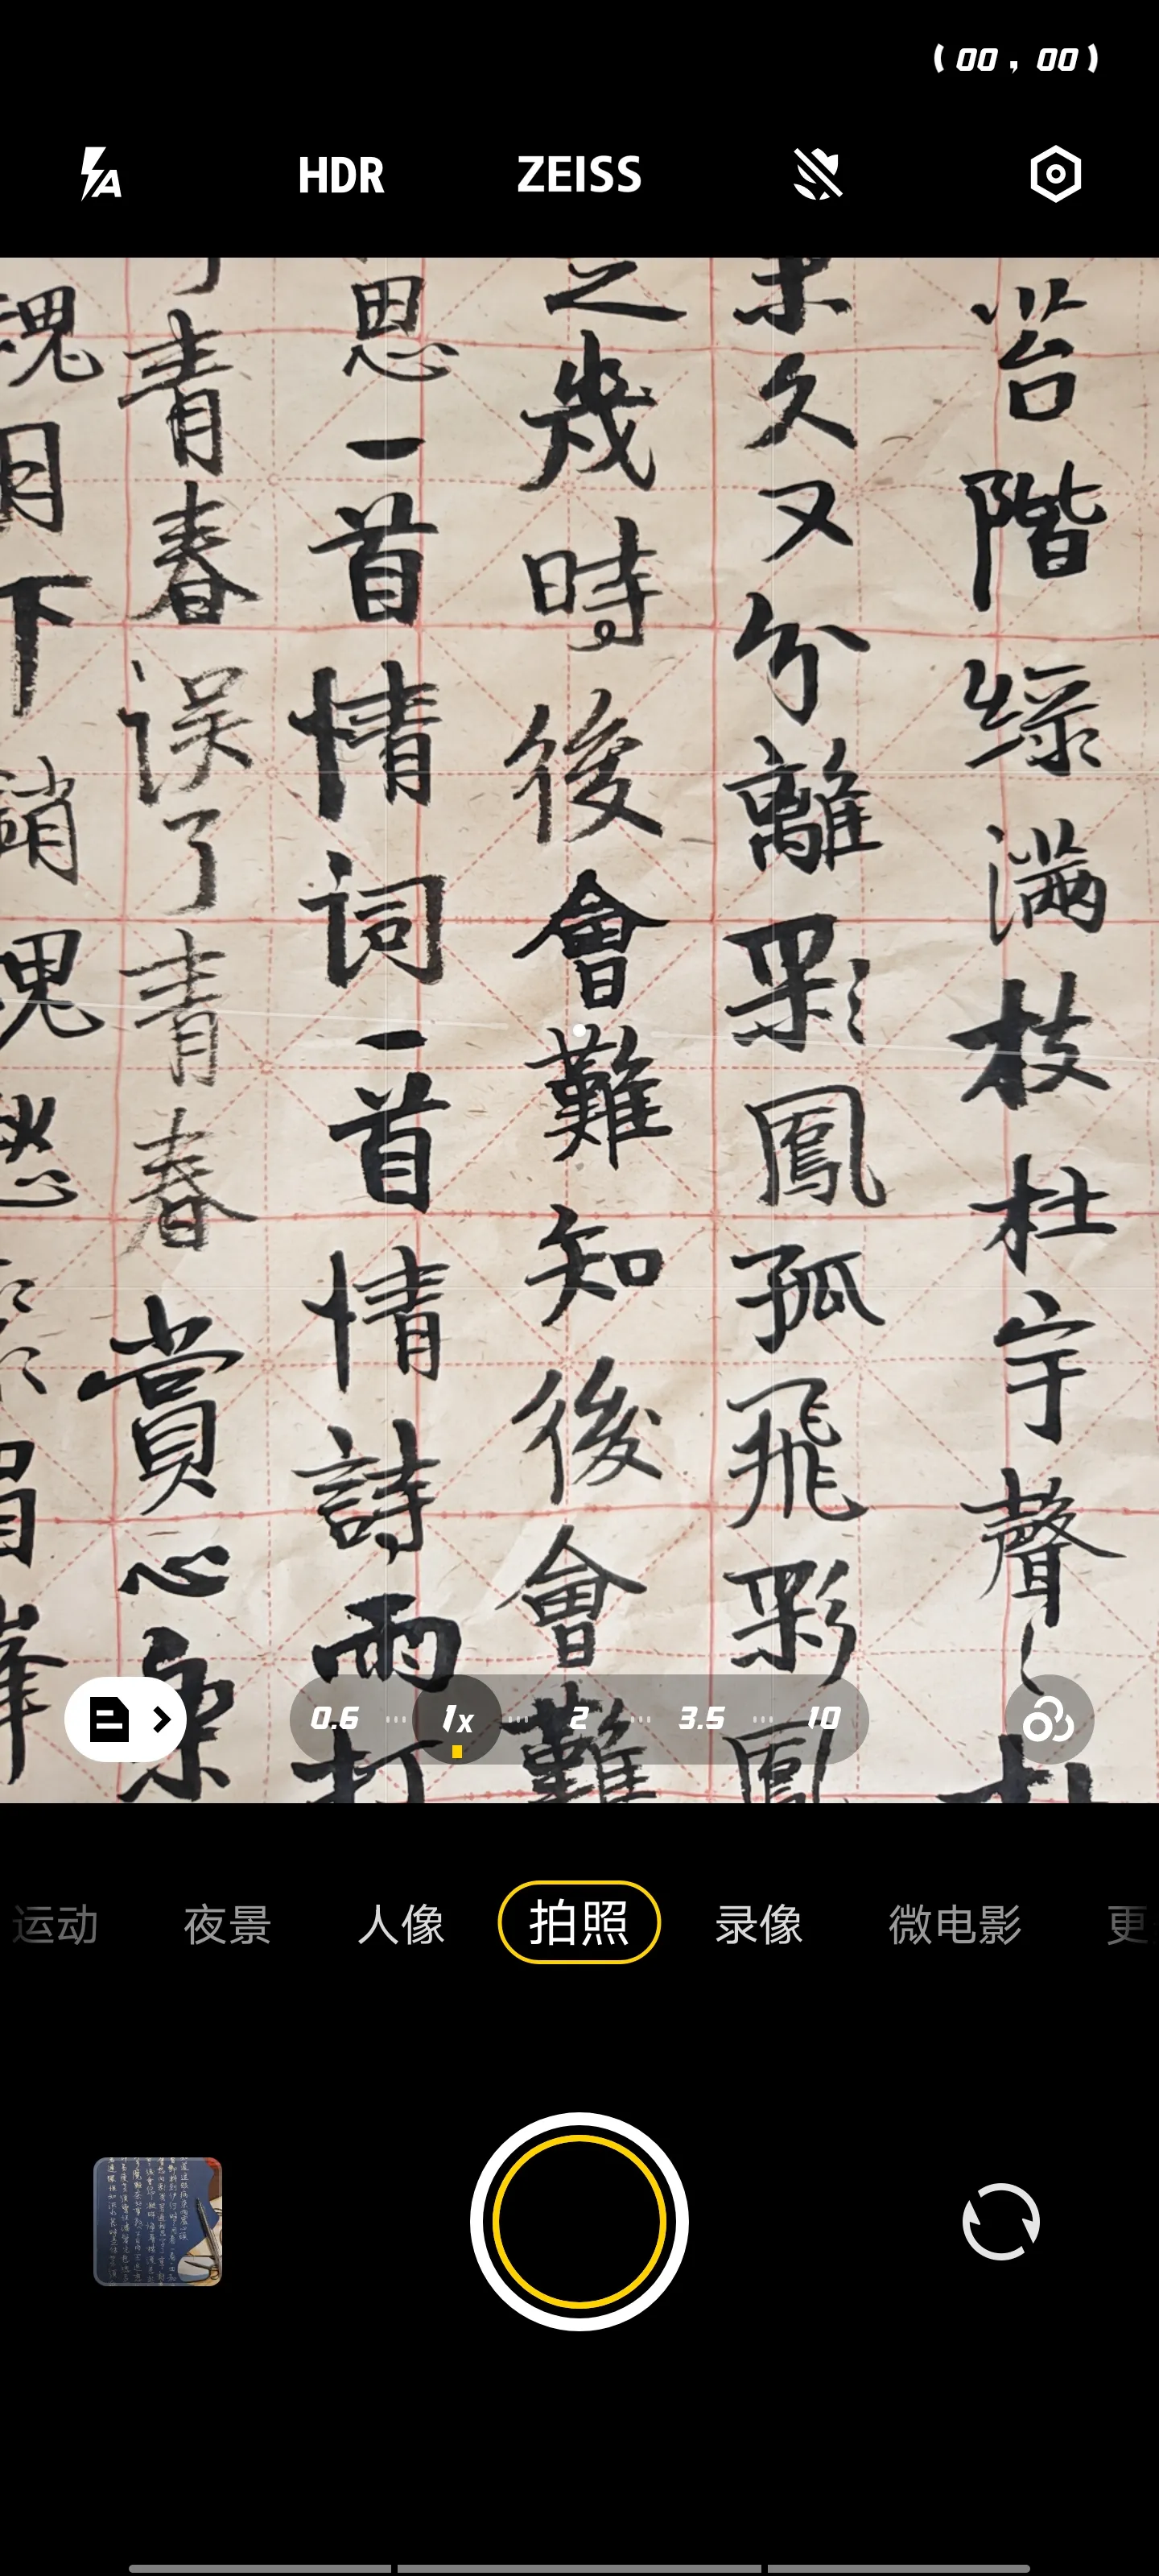 (00,00)
HDR ZEISS
苔階緑满枝杜宇聲
未久又分離彩鳳孤飛彩鳳
之幾時後會難知後會難
思一首情词一首情詩雨打
了青春误了青春賞心樂
魂月下銷魂愁眉峯
0.6 1x 2 3.5 10
运动 夜景 人像 拍照 录像 微电影 更